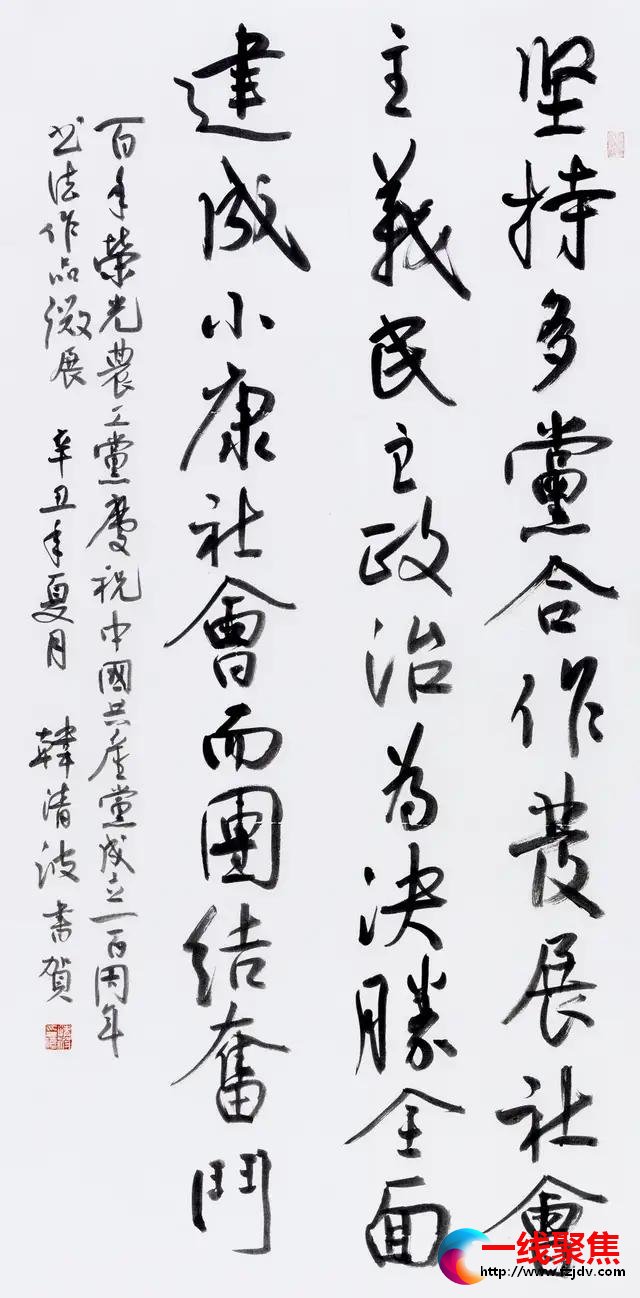 坚持多黨合作發展社會
主義民主政治為决勝全面
建成小康社會而團结奮鬥
百年榮光農工黨慶祝中國共產黨成立一百周年
书法作品微展 辛丑年夏月 韓清波書賀
一线聚焦
http://www.fzjdv.com